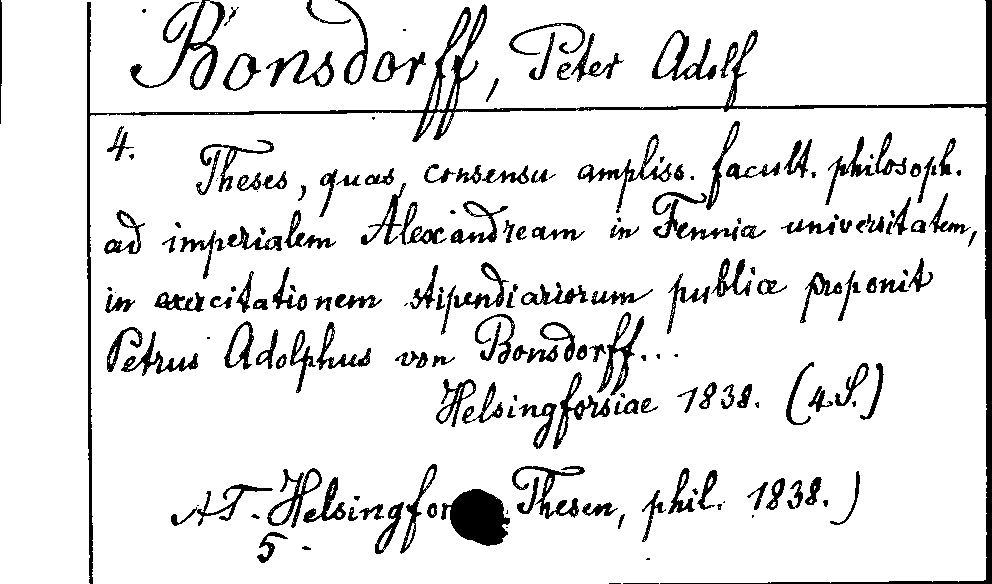 Bonsdorff, Peter Adolf
4.
Theses, quas, consensu ampliss. facult. philosoph.
ad imperialem Alexandream in Fennia universitatem,
in exercitationem stipendiariorum publice proponit
Petrus Adolphus von Bonsdorff...
Helsingforsiae 1838. (4 S.)
AT-Helsingfor Thesen, phil. 1838.)
5-